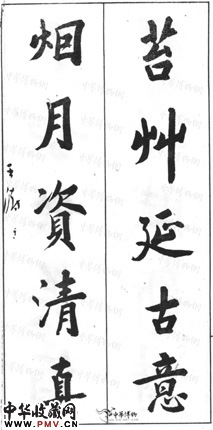 苔艸延古意
烟月資清真
中华收藏网
www.PMV.CN